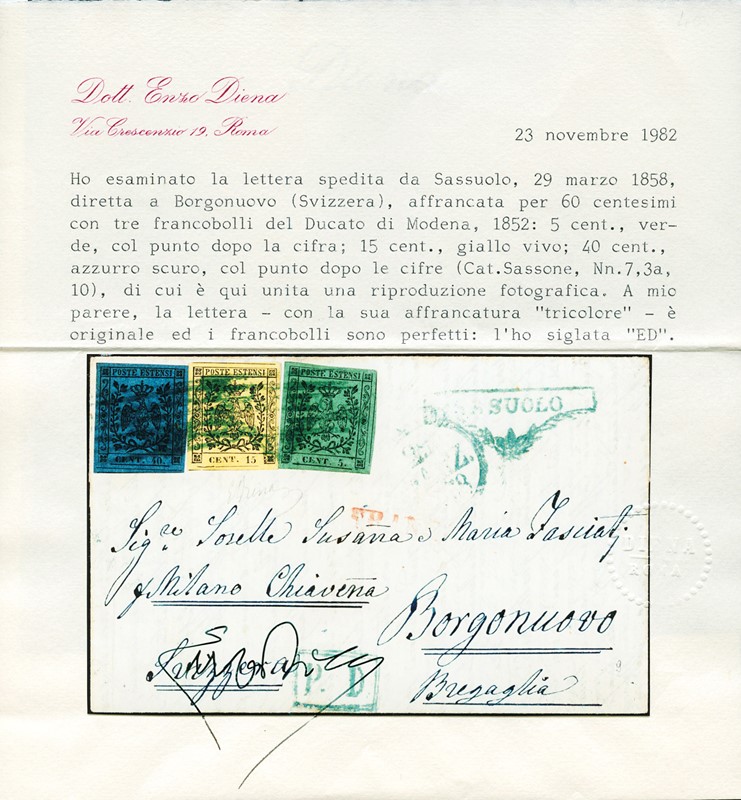 Dott. Enzo Diena
Via Crescenzio 19, Roma
23 novembre 1982
Ho esaminato la lettera spedita da Sassuolo, 29 marzo 1858,
diretta a Borgonuovo (Svizzera), affrancata per 60 centesimi
con tre francobolli del Ducato di Modena, 1852: 5 cent., ver-
de, col punto dopo la cifra; 15 cent., giallo vivo; 40 cent.,
azzurro scuro, col punto dopo le cifre (Cat.Sassone, Nn.7,3a,
10), di cui è qui unita una riproduzione fotografica. A mio
parere, la lettera - con la sua affrancatura "tricolore" - è
originale ed i francobolli sono perfetti: l'ho siglata "ED".
POSTE ESTENSI POSTE ESTENSI POSTE ESTENSI
CENT. 40. CENT. 15 CENT. 5.
SASSUOLO
Sig.re Sorelle Susanna e Maria Fasciati
Milano Chiavena
Borgonuovo
Svizzera
P. D
Bregaglia
DIENA
ROMA